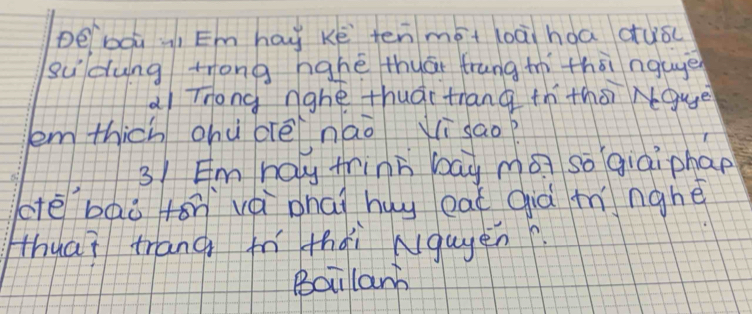 Đề bài 1) Em hãy kể tên một loài hoa được
sử dụng trong nghệ thuật trang trí thời nguyễ
2) Trong nghệ thuật trang trí thời Nguyễ
em thích chủ đề nào Vì sao?
3) Em hãy trình bày một số giải pháp
để bảo tồn và phát huy các giá trị nghệ
thuật trang trí thời Nguyễn?
Bài làm